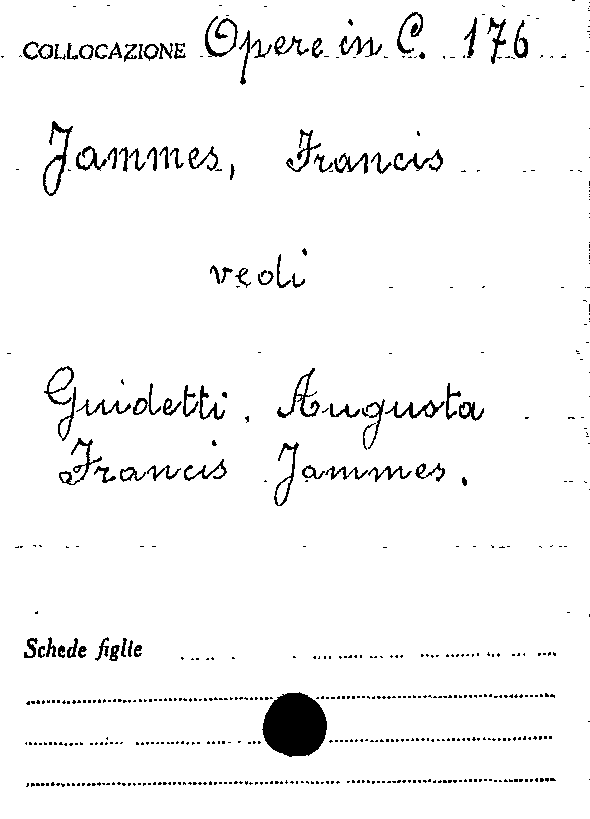 COLLOCAZIONE Opere in C. 176
Jammes, Francis
vedi
Guidetti, Augusta
Francis Jammes.
Schede figlie